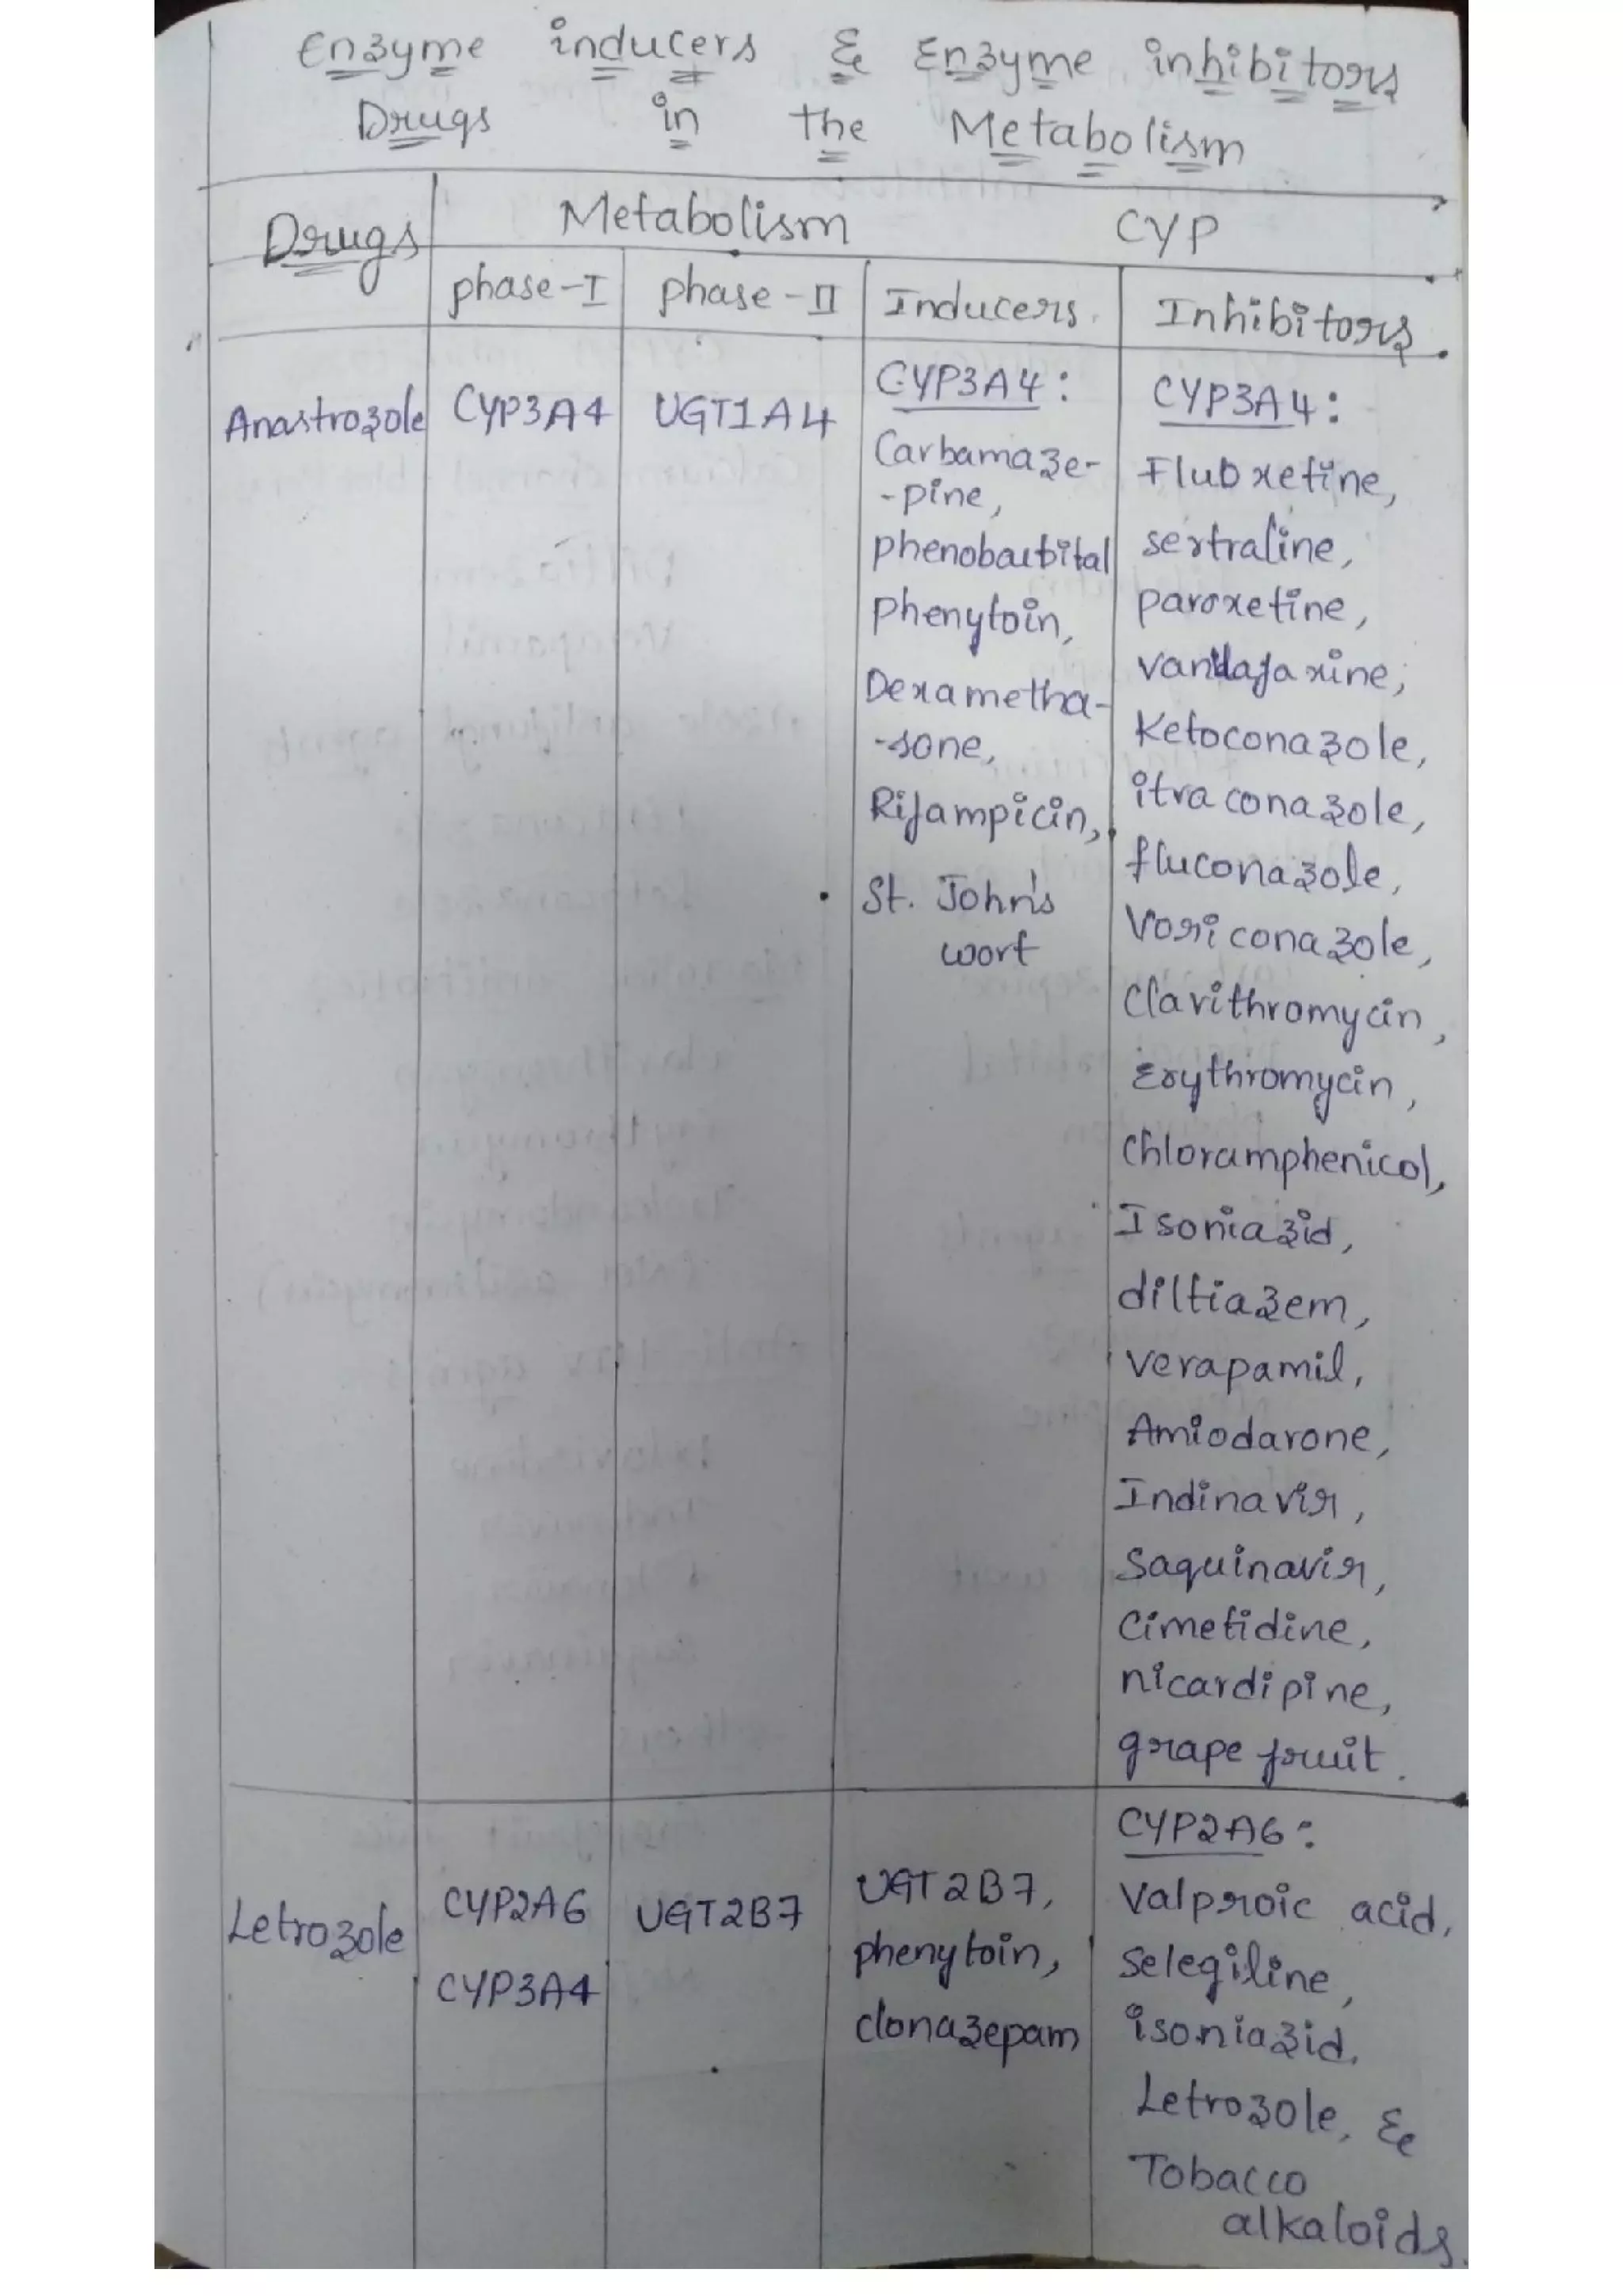 Enzyme inducers & Enzyme inhibitors
Drugs in the Metabolism
Drugs
Metabolism
CYP
phase-I
phase-II
Inducers
Inhibitors
Anastrozole
CYP3A4
UGT1A4
CYP3A4:
Carbamaze-
-pine,
phenobarbital
phenytoin,
Dexametha-
-sone,
Rifampicin,
St. John's
wort
CYP3A4:
Fluoxetine,
sertraline,
paroxetine,
Ketoconazole,
itraconazole,
fluconazole,
Voriconazole,
Clarithromycin,
Erythromycin,
Chloramphenicol,
Isoniazid,
diltiazem,
verapamil,
Amiodarone,
Indinavir,
Saquinavir,
Cimetidine,
nicardipine,
grape fruit.
Letrozole
CYP2A6
CYP3A4
UGT2B7
UGT2B7,
phenytoin,
clonazepam
CYP2A6:
Valproic acid,
Selegiline,
isoniazid,
Letrozole, &
Tobacco
alkaloids.